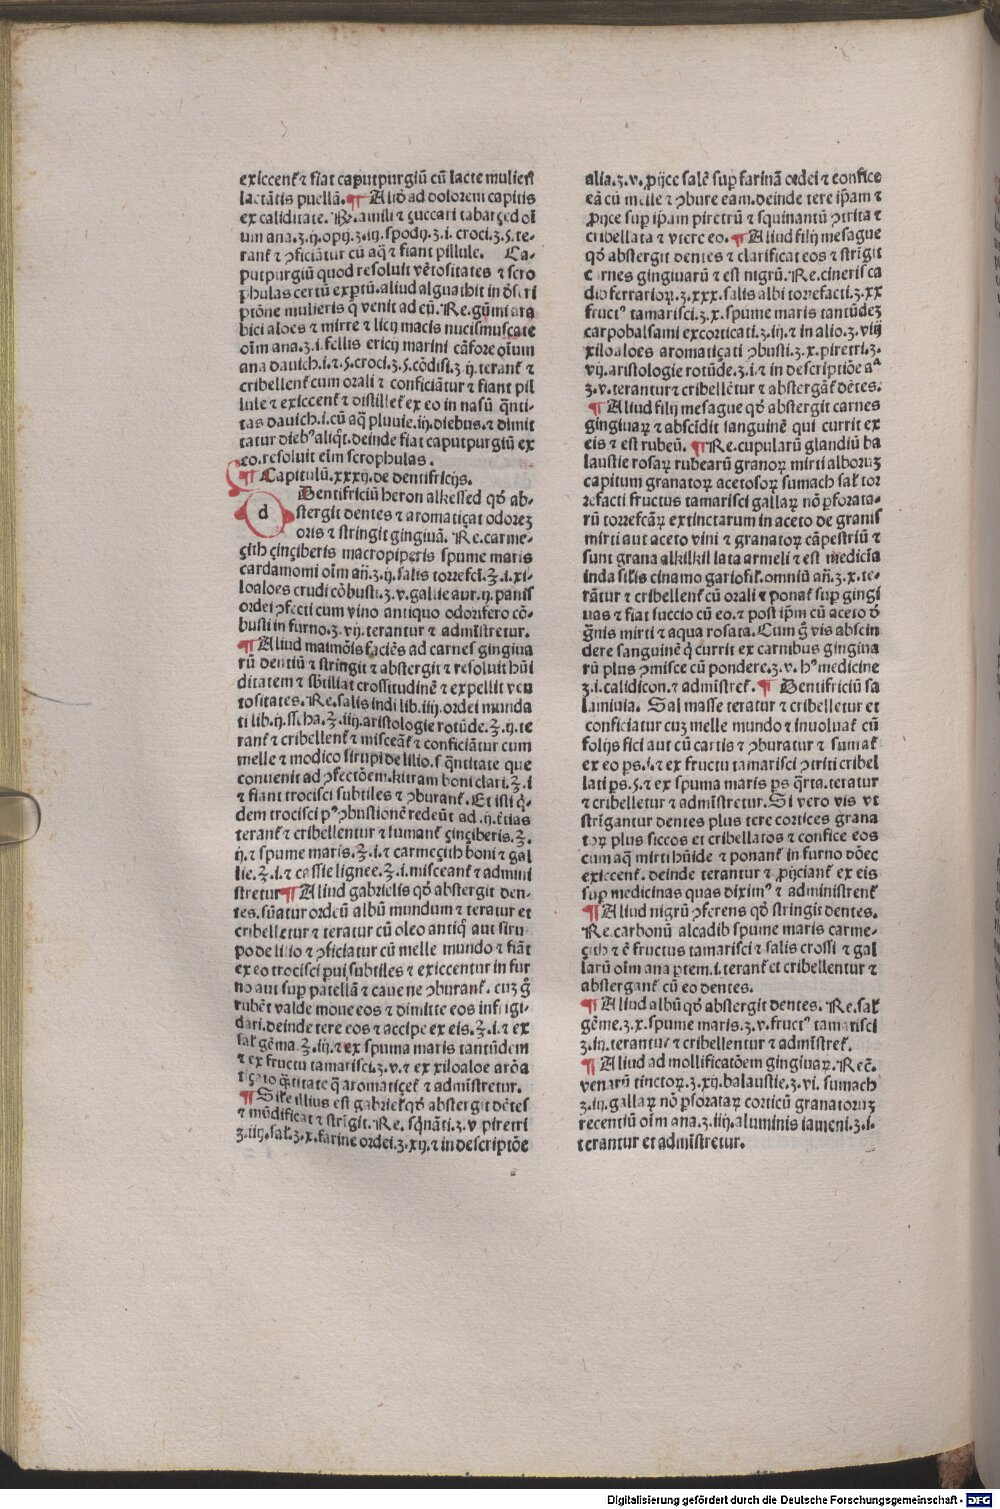 exiccent᷑ ⁊ fiat caputpurgiū cū lacte mulieri
lactātis puellā. ¶ Aliō ad dolorem capitis
ex caliditate. ℞. amili ⁊ çuccari tabarçed oī
um ana.ʒ.ij. opij.ʒ.iij. spodij.ʒ.i. croci.ʒ.s. te-
rant᷑ ⁊ ꝯficiātur cū aq̄ ⁊ fiant pillule. Ca-
putpurgiū quod resoluit vētositates ⁊ scro
phulas certū expertū. aliud alguathit in ꝺscri
ptōne mulieris q̄ venit ad eū. Re. gūmi ara
bici aloes ⁊ mirre ⁊ licij macis nucismuscate
oīm ana.ʒ.i. fellis ericij marini cāfore oīum
ana dauich.i. ⁊.s. croci.ʒ.s. cōdisi.ʒ.ij. terant᷑ ⁊
cribellent᷑ cum orali ⁊ conficiātur ⁊ fiant pil
lule ⁊ exiccent᷑ ⁊ distillet᷑ ex eo in nasū q̄nti-
tas dauich.i. cū aq̄ pluuie.iij. diebus. ⁊ dimit
tatur diebꝰ aliq̄t. deinde fiat caputpurgiū ex
eo. resoluit eīm scrophulas.
¶ Capitulū.xxxij. de dentifricijs.
d Dentifriciū heron alkessed qō ab-
stergit dentes ⁊ aromatiçat odoreꝫ
oris ⁊ stringit gingiuā. Re. carme-
çith çinçiberis macropiperis spume maris
cardamomi oīm añ.ʒ.ij. salis torrefcī.℥.i. xi-
loaloes crudi cōbusti.ʒ.v. galbe aur.ij. panis
ordei ꝯfecti cum vino antiquo odorifero cō-
busti in furno.ʒ.vij. terantur ⁊ admīstretur.
¶ Aliud maimōis faciēs ad carnes gingiua
rū dentiū ⁊ stringit ⁊ abstergit ⁊ resoluit hūi
ditatem ⁊ sbtiliat crossitudinē ⁊ expellit ven
tositates. Re. salis indi lib.iij. ordei munda
ti lib.ij. sscha.℥.iij. aristologie rotūde.℥.ij. te
rant᷑ ⁊ cribellent᷑ ⁊ misceāt᷑ ⁊ conficiātur cum
melle ⁊ modico sirupi de lilio. s q̄ntitate que
conuenit ad ꝯfectōem. kitram boni clari.℥.i
⁊ fiant trocisci subtiles ⁊ ꝯburant᷑. Et isti q̄-
dem trocisci pꝰ ꝯbustionē redeūt ad.ij. t̄tias
terant᷑ ⁊ cribellentur ⁊ sumant᷑ çinçiberis.℥.
ij. ⁊ spume maris.℥.i. ⁊ carmeçith boni ⁊ gal
lie.℥.i. ⁊ cassie lignee.℥.i. misceant᷑ ⁊ admini
stretur ¶ Aliud gabrielis qō abstergit den-
tes. sūatur ordeū albū mundum ⁊ teratur et
cribelletur ⁊ teratur cū oleo antiq̄ aut siru
po de lilio ⁊ ꝯficiatur cū melle mundo ⁊ fiāt
ex eo trocisci ꝑui subtiles ⁊ exiccentur in fur
no aut sup patellā ⁊ caue ne ꝯburant᷑. cuꝫ ḡ
rubēt valde moue eos ⁊ dimitte eos infrigi-
dari. deinde tere eos ⁊ accipe ex eis.℥.i. ⁊ ex
sał gēma.℥.iij. ⁊ ex spuma maris tantūdem
⁊ ex fructu tamarisci.ʒ.v. ⁊ ex xiloaloe arōa
tiçato q̄titate q̄ aromatiçet᷑ ⁊ admīstretur.
¶ Siłe illius est gabrieł qō abstergit dētes
⁊ mūdificat ⁊ strīgit. Re. sqnāti.ʒ.v piretri
ʒ.iiij. sał.ʒ.x. farine ordei.ʒ.xij. ⁊ in descriptōe
alia.ʒ.v. ꝓijce salē sup farinā ordei ⁊ confice
eā cū melle ⁊ ꝯbure eam. deinde tere ip̄am ⁊
ꝓijce sup ip̄am piretrū ⁊ squinantū ꝯtrita ⁊
cribellata ⁊ vtere eo. ¶ Aliud filij mesague
qō abstergit dentes ⁊ clarificat eos ⁊ strīgit
carnes gingiuarū ⁊ est nigrū. Re. cineris ca
dio ferrarioꝝ.ʒ.xxx. salis albi torrefacti.ʒ.xx
fructꝰ tamarisci.ʒ.x. spume maris tantūdeꝫ
carpobalsami excorticati.ʒ.iij. ⁊ in alio.ʒ.viij
xiloaloes aromatiçati ꝯbusti.ʒ.x. piretri.ʒ.
vij. aristologie rotūde.ʒ.i. ⁊ in descriptiōe aᵃ
ʒ.v. terantur ⁊ cribellētur ⁊ abstergāt᷑ dētes.
¶ Aliud filij mesague qō abstergit carnes
gingiuaꝝ ⁊ abscidit sanguinē qui currit ex
eis ⁊ est rubeū. ¶ Re. cupularū glandiū ba
laustie rosaꝝ rubearū granoꝝ mirti alboruꝫ
capitum granatoꝝ acetosoꝝ sumach sał tor
refacti fructus tamarisci gallaꝝ nō ꝑforata-
rū torrefcāꝝ extinctarum in aceto de granis
mirti aut aceto vini ⁊ granatoꝝ cāpestriū ⁊
sunt grana alkilkil lata armeli ⁊ est medicīa
inda siłis cinamo gariofił. omniū añ.ʒ.x. te-
rātur ⁊ cribellent᷑ cū orali ⁊ ponat᷑ sup gingi
uas ⁊ fiat succio cū eo. ⁊ post ip̄m cū aceto ꝺ
ḡnis mirti ⁊ aqua rosata. Cum ḡ vis abscin
dere sanguinē q̄ currit ex carnibus gingiua
rū plus ꝯmisce cū pondere.ʒ.v. hꝰ medicine
ʒ.i. calidicon. ⁊ admīstret᷑. ¶ Dentifriciū sa
lamiuia. Sal masse teratur ⁊ cribelletur et
conficiatur cuꝫ melle mundo ⁊ inuoluat᷑ cū
folijs fici aut cū cartis ⁊ ꝯburatur ⁊ sumat᷑
ex eo ꝑs.i. ⁊ ex fructu tamarisci ꝯtriti cribel
lati ꝑs.s. ⁊ ex spuma maris ꝑs q̄rta. teratur
⁊ cribelletur ⁊ admīstretur. Si vero vis vt
strīgantur dentes plus tere cortices grana
toꝝ plus siccos et cribellatos ⁊ confice eos
cum aq̄ mirti hūide ⁊ ponant᷑ in furno dōec
exiccent᷑. deinde terantur ⁊ ꝓijciant᷑ ex eis
sup medicinas quas diximꝰ ⁊ administrent᷑
¶ Aliud nigrū ꝯferens qō stringit dentes.
Re. carbonū alcadib spume maris carme-
çith ⁊ ē fructus tamarisci ⁊ salis crossi ⁊ gal
larū oīm ana ꝑtem.i. terant᷑ et cribellentur ⁊
abstergant᷑ cū eo dentes.
¶ Aliud albū qō abstergit dentes. Re. sał
gēme.ʒ.x. spume maris.ʒ.v. fructꝰ tamarisci
ʒ.iij. terantur ⁊ cribellentur ⁊ admīstret᷑.
¶ Aliud ad mollificatōem gingiuaꝝ. Rec̄.
venarū tinctoꝝ.ʒ.xij. balaustie.ʒ.vi. sumach
ʒ.iij. gallaꝝ nō ꝑforataꝝ corticū granatoruꝫ
recentiū oīm ana.ʒ.iiij. aluminis iameni.ʒ.i.
terantur et admīstretur.
Digitalisierung gefördert durch die Deutsche Forschungsgemeinschaft - DFG